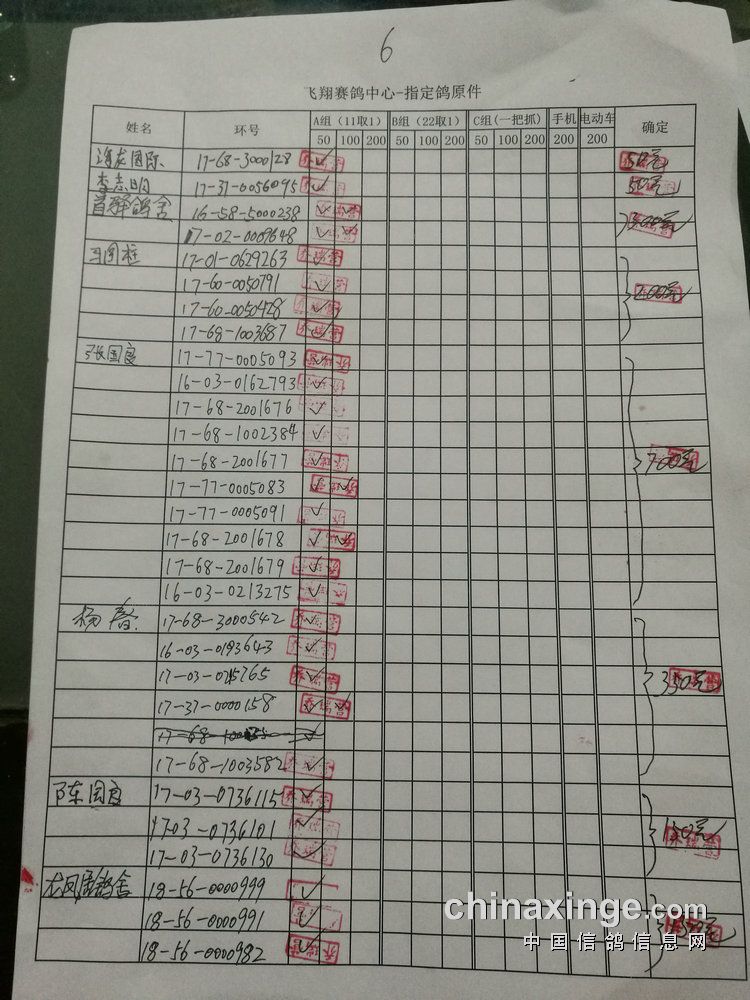 6
飞翔赛鸽中心-指定鸽原件
姓名 环号 A组（11取1） B组（22取1） C组(一把抓) 手机 电动车 确定
50 100 200 50 100 200 50 100 200 200 200
海龙国际 17-68-3000128 ✓ 50元
李志明 17-37-0056095 ✓ 50元
首翔鸽舍 16-58-5000238 ✓ ✓
17-02-0009648 ✓ ✓
17-01-0629263 ✓
17-60-0050791 ✓ 200元
17-60-0050428 ✓
17-68-1003687 ✓
张国良 17-77-0005093 ✓
16-03-0162793 ✓
17-68-2001676 ✓
17-68-1002384 ✓
17-68-2001677 ✓ 700元
17-77-0005083 ✓ ✓
17-77-0005091 ✓
17-68-2001678 ✓ ✓
17-68-2001679 ✓
16-03-0213275 ✓
杨春 17-68-3000542 ✓
16-03-0193643 ✓
17-03- ✓ 350元
17-37-0000158 ✓ ✓
17-68-1003582 ✓
陈国良 17-03-0736115 ✓
17-03-0736101 ✓ 150元
17-03-0736130 ✓
18-56-0000999 ✓
18-56-0000991 ✓
18-56-0000982 ✓
chinaxinge.com
中国信鸽信息网